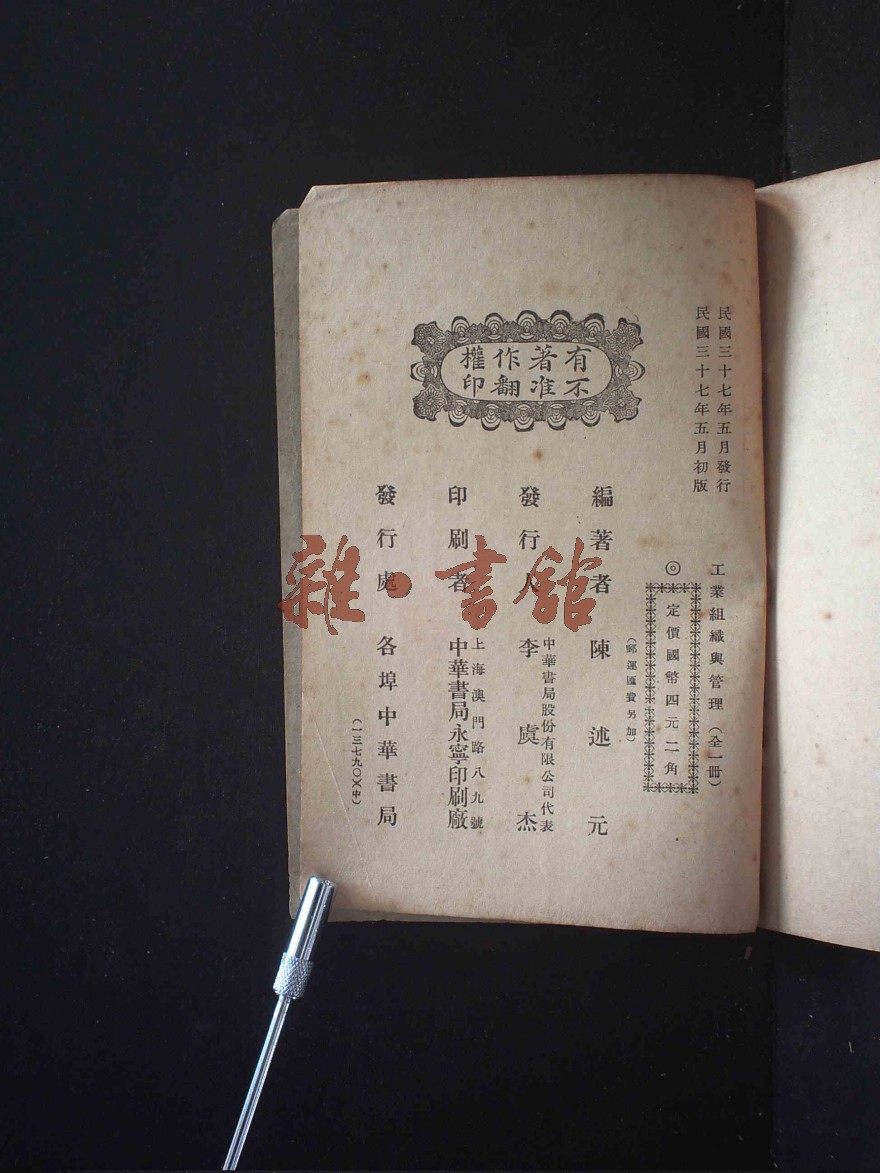 民國三十七年五月發行
民國三十七年五月初版
工業組織與管理(全一冊)
◎定價國幣四元二角
(郵運匯費另加)
有著作權
不准翻印
編著者 陳述元
中華書局股份有限公司代表
發行人 李虞杰
上海澳門路八九號
印刷者 中華書局永寧印刷廠
發行處 各埠中華書局
(一三七九〇)(中)
雜·書館